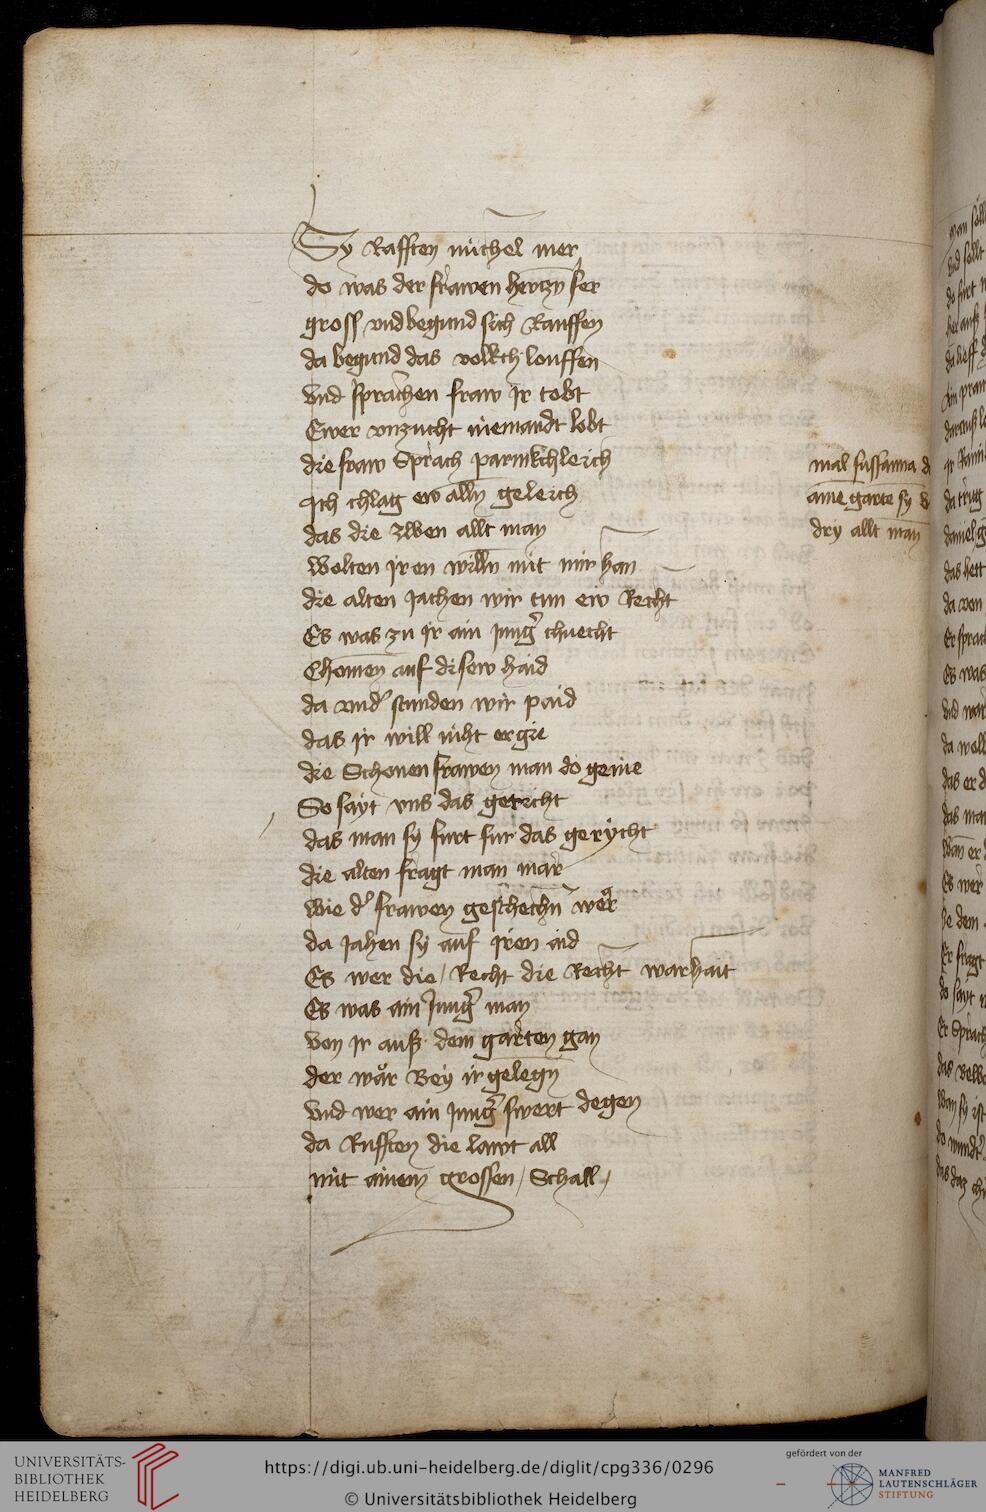 Sy Rafften michel mer
do was der frawen hertzn ser
gross vnd begund sich Rauffen
da begund das volkch louffen
vnd sprachen fraw jr tobt
Ewer vnzucht niemandt lobt
die fraw Sprach parmkchleich
Ich chlag ew alln geleich
das die zwen allt man
Wolten jren willn mit mir han
die alten jachen wir tun ew Recht
Es was zu jr ain jung chnecht
Chomen auf disew haid
da vnd stunden wir paid
das jr will niht ergie
die Schonen frawen man do gevie
So sayt vns das geticht
das man sy furt fur das gerycht
die alten fragt man mar
wie d frawen geschechn wer
da jahen sy auf jren aid
Es wer die Recht die Recht warhait
Es was ain Jung man
von jr auß dem garten gan
der war Bey ir gelegn
vnd wer ain jung swert degen
da Rufften die lawt all
mit ainem grossen Schall
mal sussanna
ame garte sy
dry allt man
UNIVERSITÄTS-
BIBLIOTHEK
HEIDELBERG
https://digi.ub.uni-heidelberg.de/diglit/cpg336/0296
© Universitätsbibliothek Heidelberg
gefördert von der
MANFRED
LAUTENSCHLÄGER
STIFTUNG